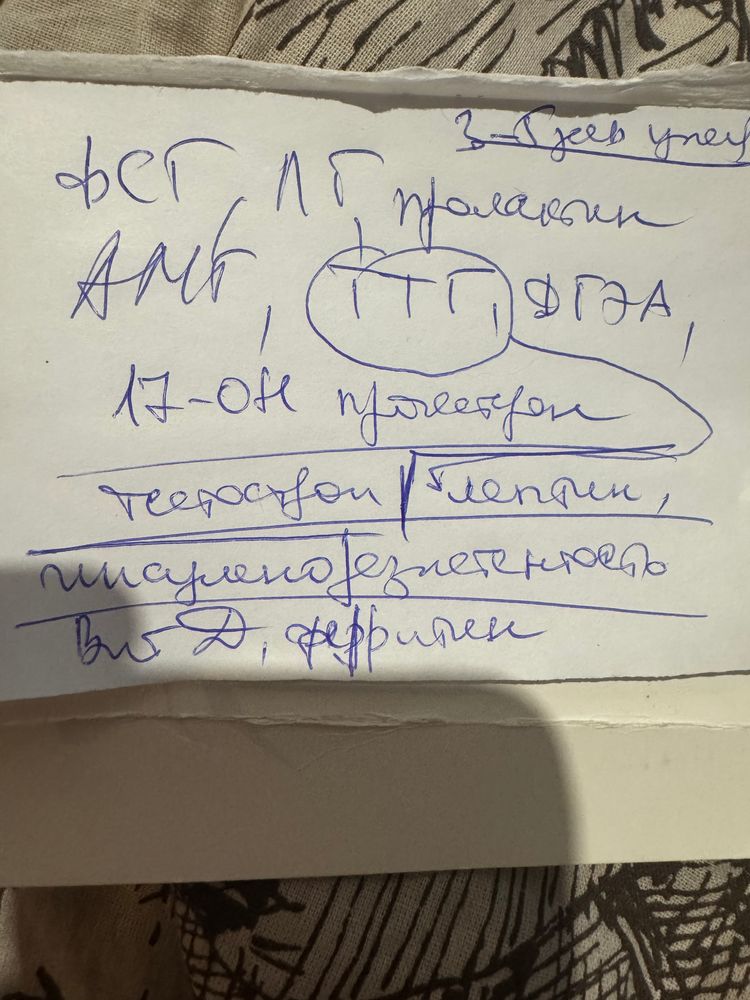 3-5 день цикл
ФСГ, ЛГ, пролактин
АМГ, ТТГ, ДГЭА,
17-ОН прогестрон
тестострон лептин,
инсулинорезистентность
Вит Д, ферритин